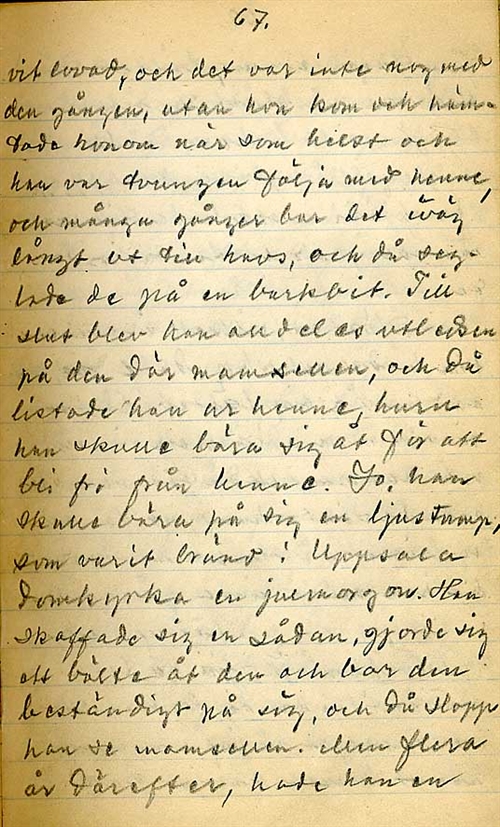 67.
vit lovad, och det var inte nog med
den gången, utan hon kom och häm-
tade honom när som helst och
han var tvungen följa med henne,
och många gånger bar det iväg
långt ut till havs, och då seg-
lade de på en barkbit. Till
slut blev han alldeles utledsen
på den där mamsellen, och då
listade han ur henne, huru
han skulle bära sig åt för att
bli fri från henne. Jo, han
skulle bära på sig en ljusstump,
som varit bränd i Uppsala
domkyrka en julmorgon. Han
skaffade sig en sådan, gjorde sig
ett bälte åt den och bar den
beständigt på sig, och då slapp
han se mamsellen. Men flera
år därefter, hade han en